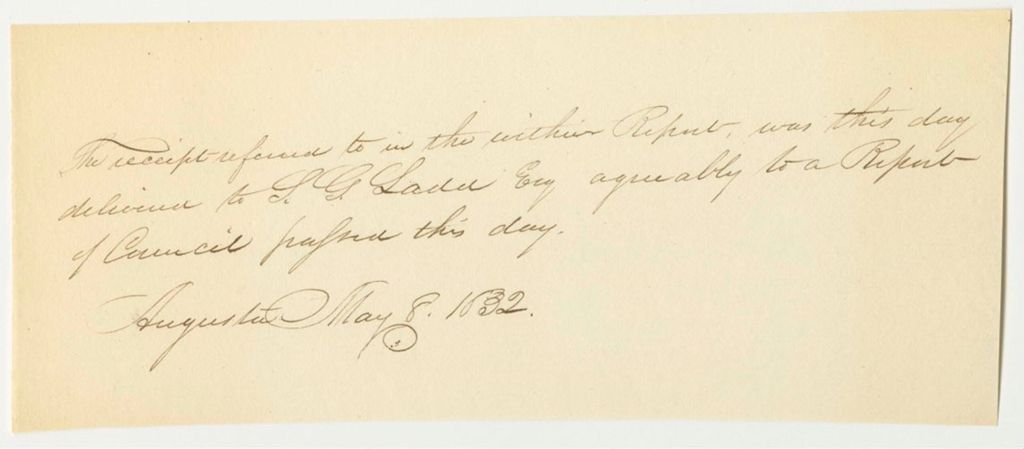 The receipt referred to in the within Report, was this day
delivered to S. G. Ladd Esq agreeably to a Report
of Council passed this day.
Augusta May 8. 1832.